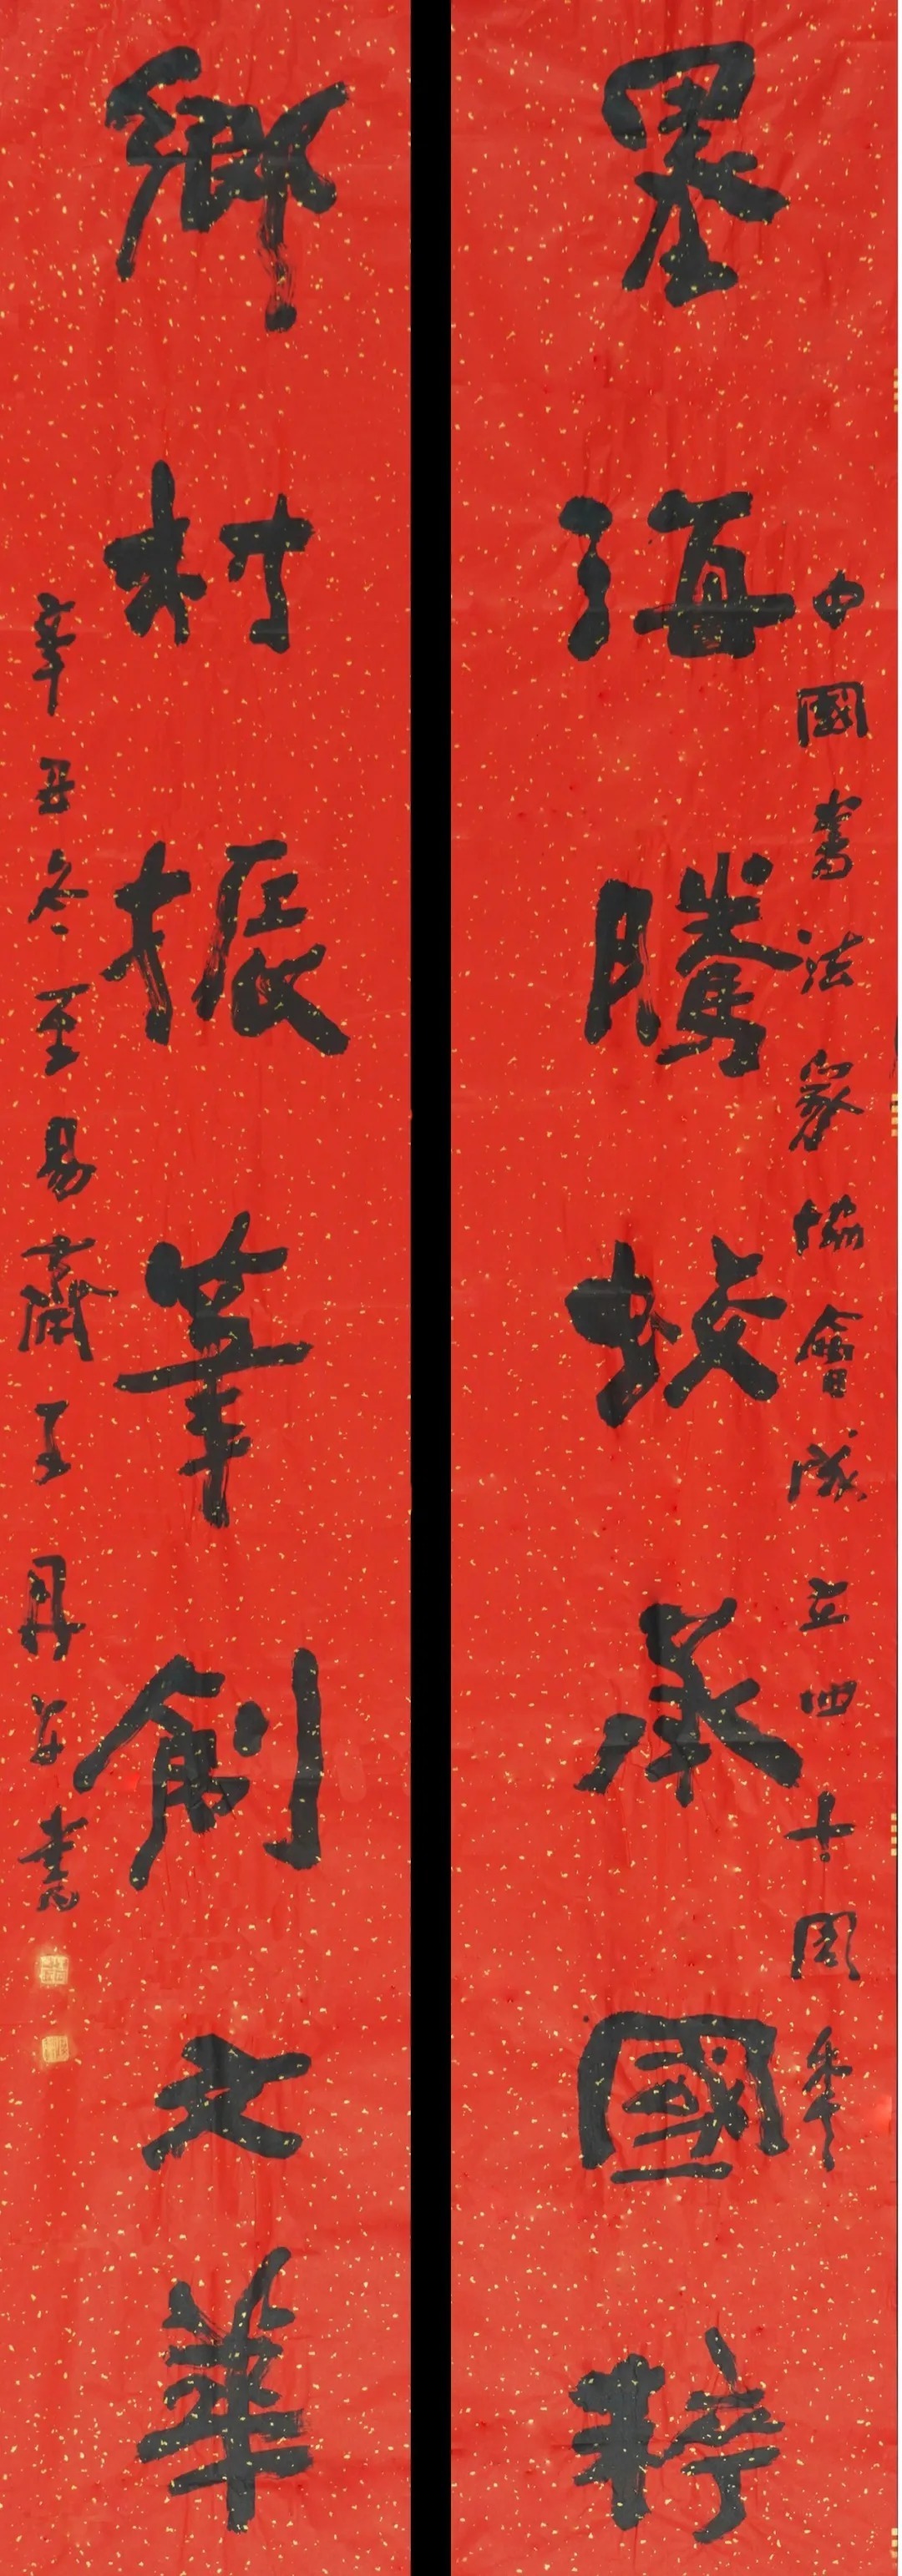 中國書法家協會成立四十周年
墨海騰蛟承國粹
鄉村振筆創文華
辛丑冬至易齋王丹書